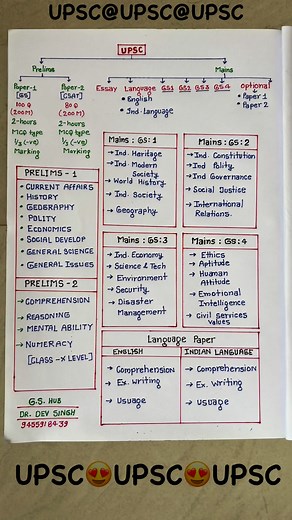 UPSC@UPSC@UPSC
UPSC
Prelims
Mains
Paper-1
[GS]
100 Q
(200M)
2-hours
MCQ type
1/3 (-ve)
Marking
Paper-2
[CSAT]
80 Q
(200M)
2-hours
MCQ type
1/3 (-ve)
Marking
Essay Language GS1 GS2 GS3 GS4 Optional
• English
• Ind-Language
• Paper 1
• Paper 2
PRELIMS - 1
• CURRENT AFFAIRS
• HISTORY
• GEOGRAPHY
• POLITY
• ECONOMICS
• SOCIAL DEVELOP
• GENERAL SCIENCE
• GENERAL ISSUES
PRELIMS - 2
→ COMPREHENSION
→ REASONING
→ MENTAL ABILITY
→ NUMERACY
[CLASS-X LEVEL]
G.S. HUB
DR. DEV SINGH
9455918439
Mains : GS:1
→ Ind. Heritage
→ Ind. Modern
Society
→ World History
→ Ind. Society
→ Geography
Mains : GS:2
→ Ind. Constitution
→ Ind Polity
→ Ind Governance
→ Social Justice
→ International
Relations.
Mains : GS:3
→ Ind. Economy
→ Science & Tech
→ Environment
→ Security
→ Disaster
Management
Mains : GS:4
→ Ethics
→ Aptitude
→ Human
Attitude
→ Emotional
Intelligence
→ Civil Services
Values
Language Paper
ENGLISH
→ Comprehension
→ Ex. Writing
→ Usuage
INDIAN LANGUAGE
→ Comprehension
→ Ex. Writing
→ Usuage
UPSC😍UPSC😍UPSC